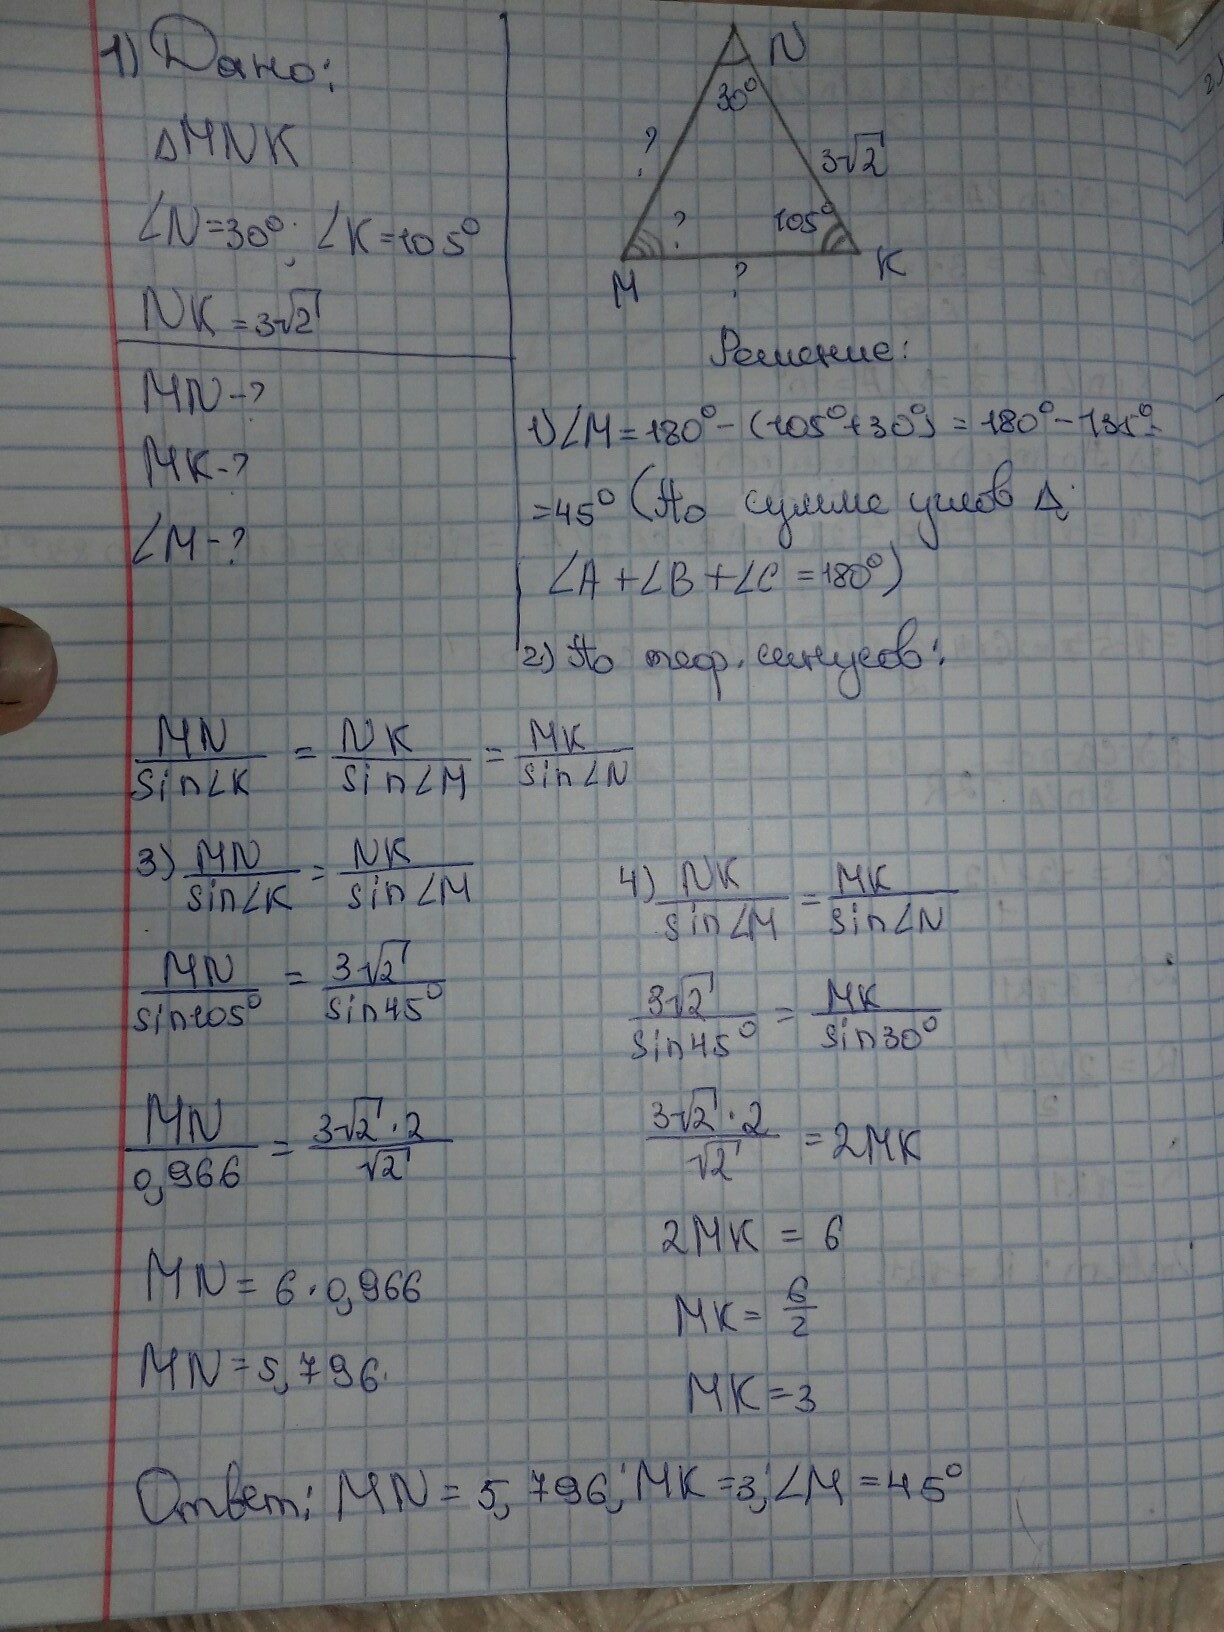 1) Дано:
△MNK
∠N=30°; ∠K=105°
NK=3√2
MN-?
MK-?
∠M-?
N
30°
?
3√2
?
105°
M
?
K
Решение:
1) ∠M=180°-(105°+30°)=180°-135°=
=45° (По сумме углов △:
∠A+∠B+∠C=180°)
2) По теор. синусов:
MN/sin∠K = NK/sin∠M = MK/sin∠N
3) MN/sin∠K = NK/sin∠M
MN/sin105° = 3√2/sin45°
MN/0,966 = 3√2·2/√2
MN=6·0,966
MN=5,796
4) NK/sin∠M = MK/sin∠N
3√2/sin45° = MK/sin30°
3√2·2/√2 = 2MK
2MK=6
MK=6/2
MK=3
Ответ: MN=5,796; MK=3; ∠M=45°